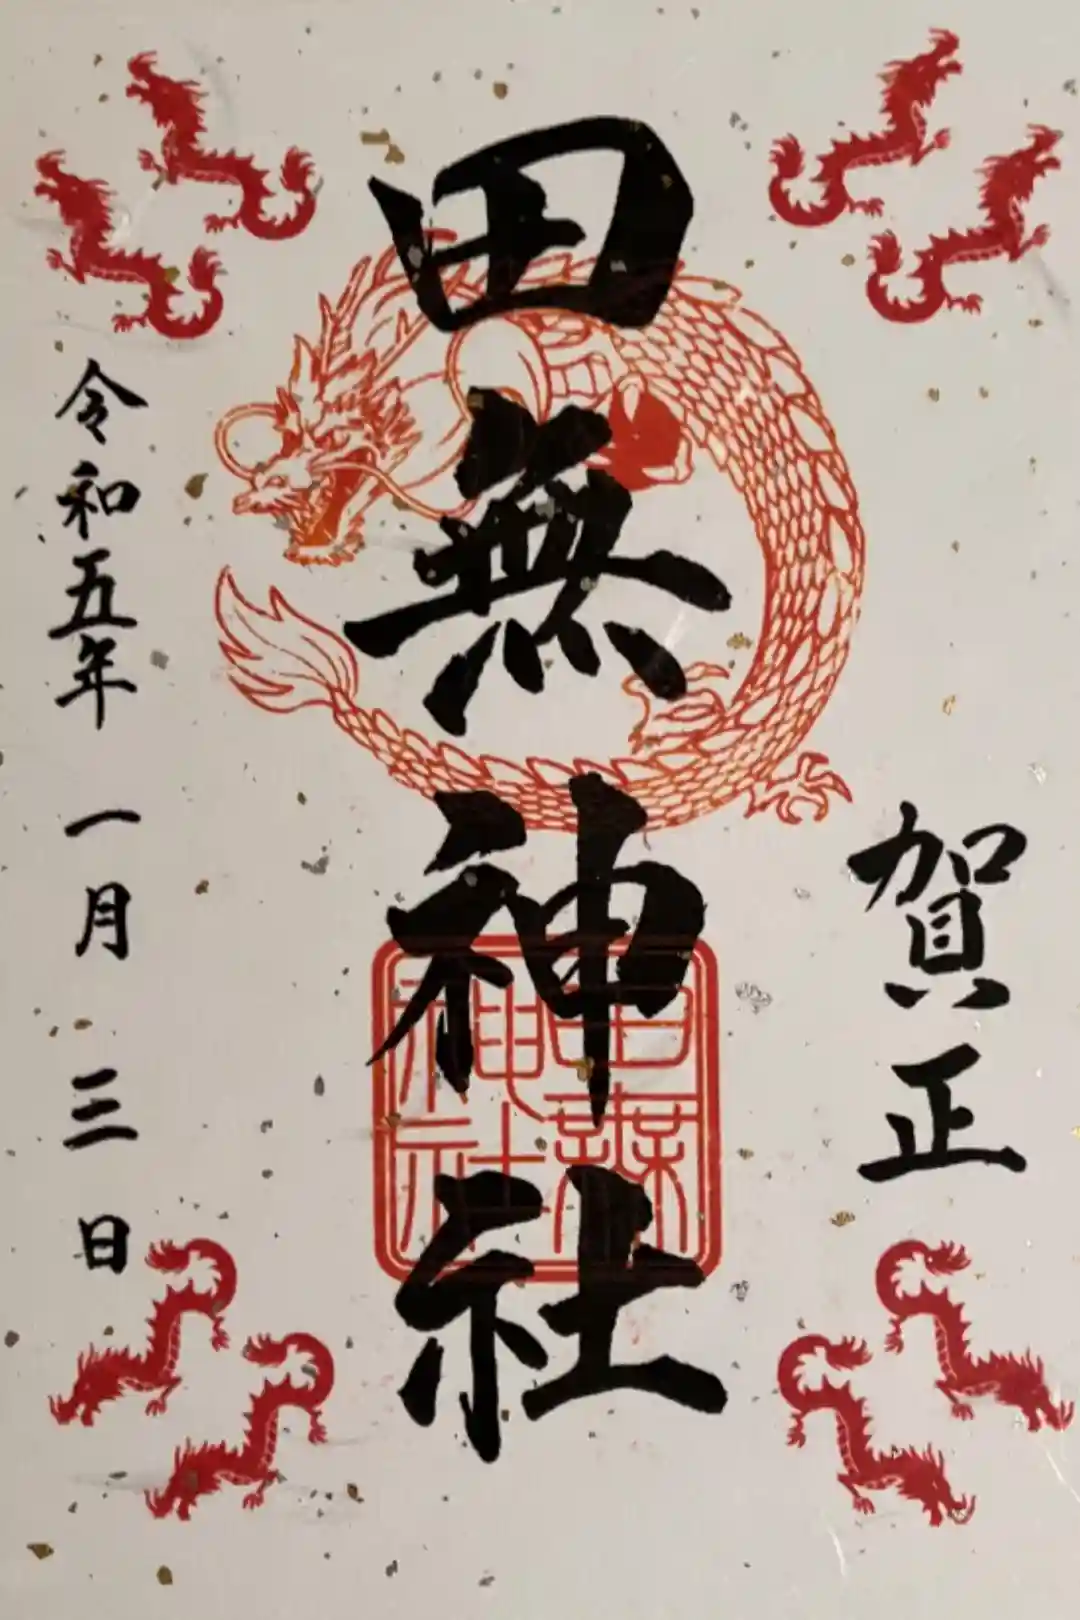 賀正
田無神社
田無神社
令和五年 一月 三日